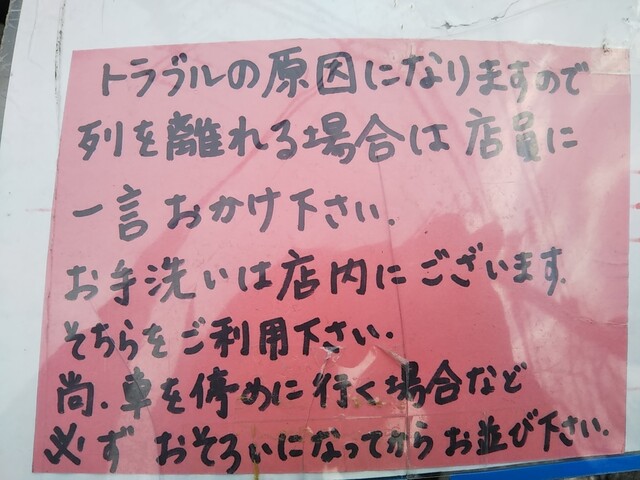 トラブルの原因になりますので
列を離れる場合は店員に
一言おかけ下さい.
お手洗いは店内にございます.
そちらをご利用下さい.
尚.車を停めに行く場合など
必ず おそろいになってからお並び下さい.